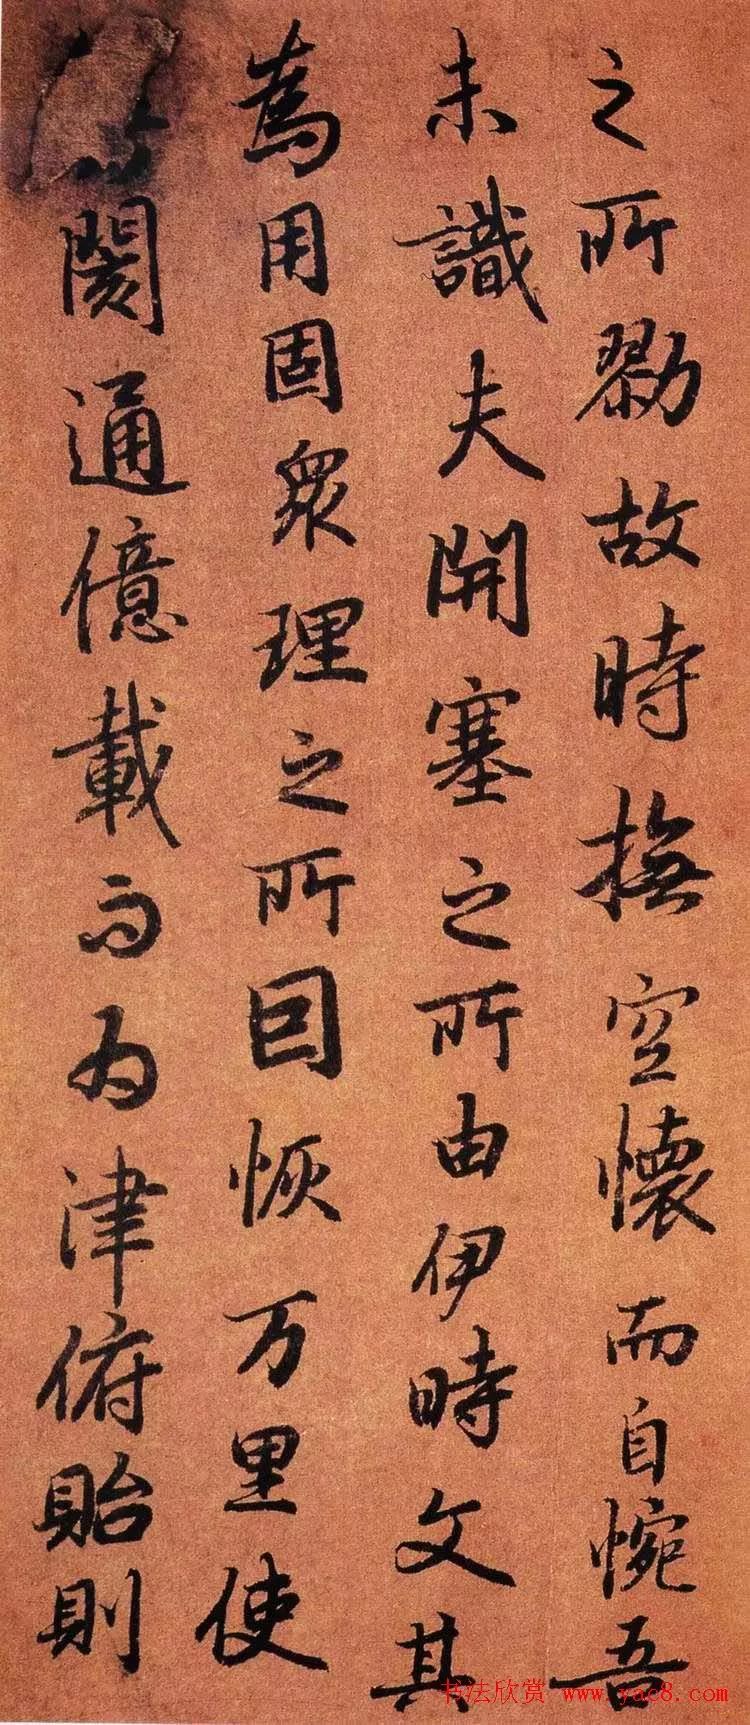 之所勠故時撫空懷而自惋吾
未識夫開塞之所由伊時文其
為用固眾理之所囙恢万里使
閡通億載而为津俯貽則
书法欣赏 www.yac8.com